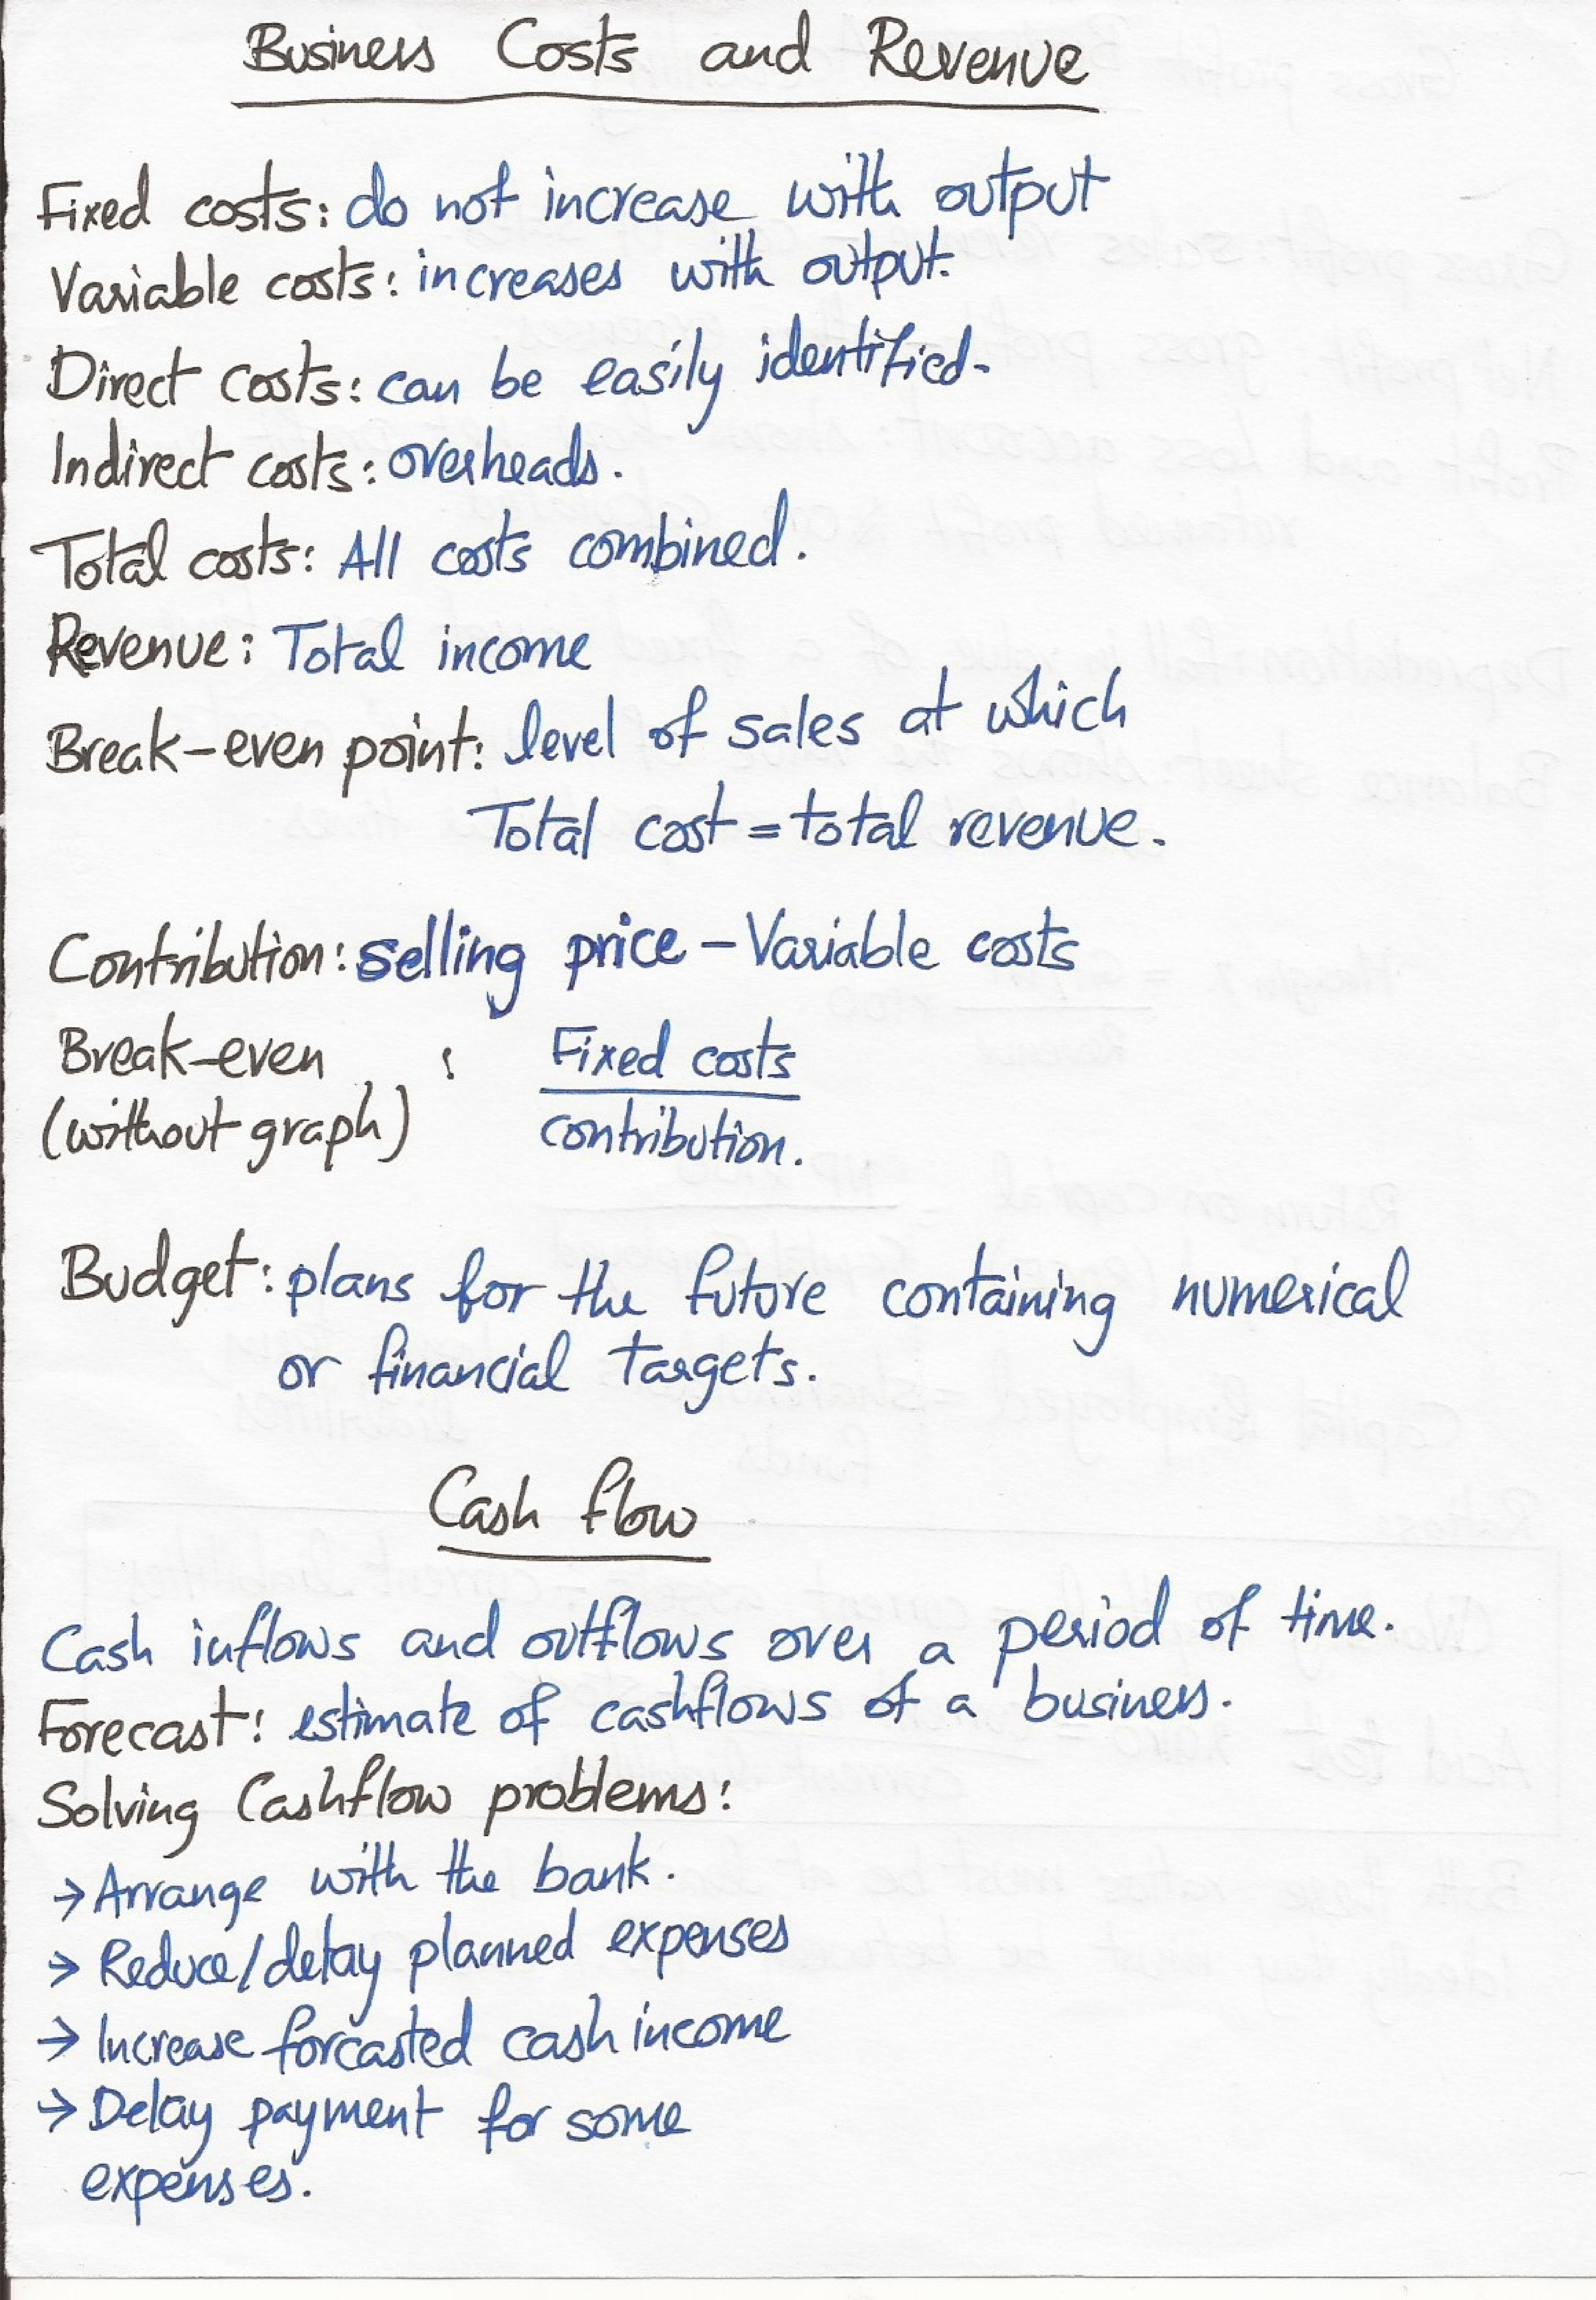 Business Costs and Revenue
Fixed costs: do not increase with output
Variable costs: increases with output.
Direct costs: can be easily identified.
Indirect costs: overheads.
Total costs: All costs combined.
Revenue: Total income
Break-even point: level of sales at which
Total cost = total revenue.
Contribution: selling price - Variable costs
Break-even : Fixed costs
(without graph) contribution.
Budget: plans for the future containing numerical
or financial targets.
Cash flow
Cash inflows and outflows over a period of time.
Forecast: estimate of cashflows of a business.
Solving Cashflow problems:
→ Arrange with the bank.
→ Reduce/delay planned expenses
→ Increase forcasted cash income
→ Delay payment for some
expenses.